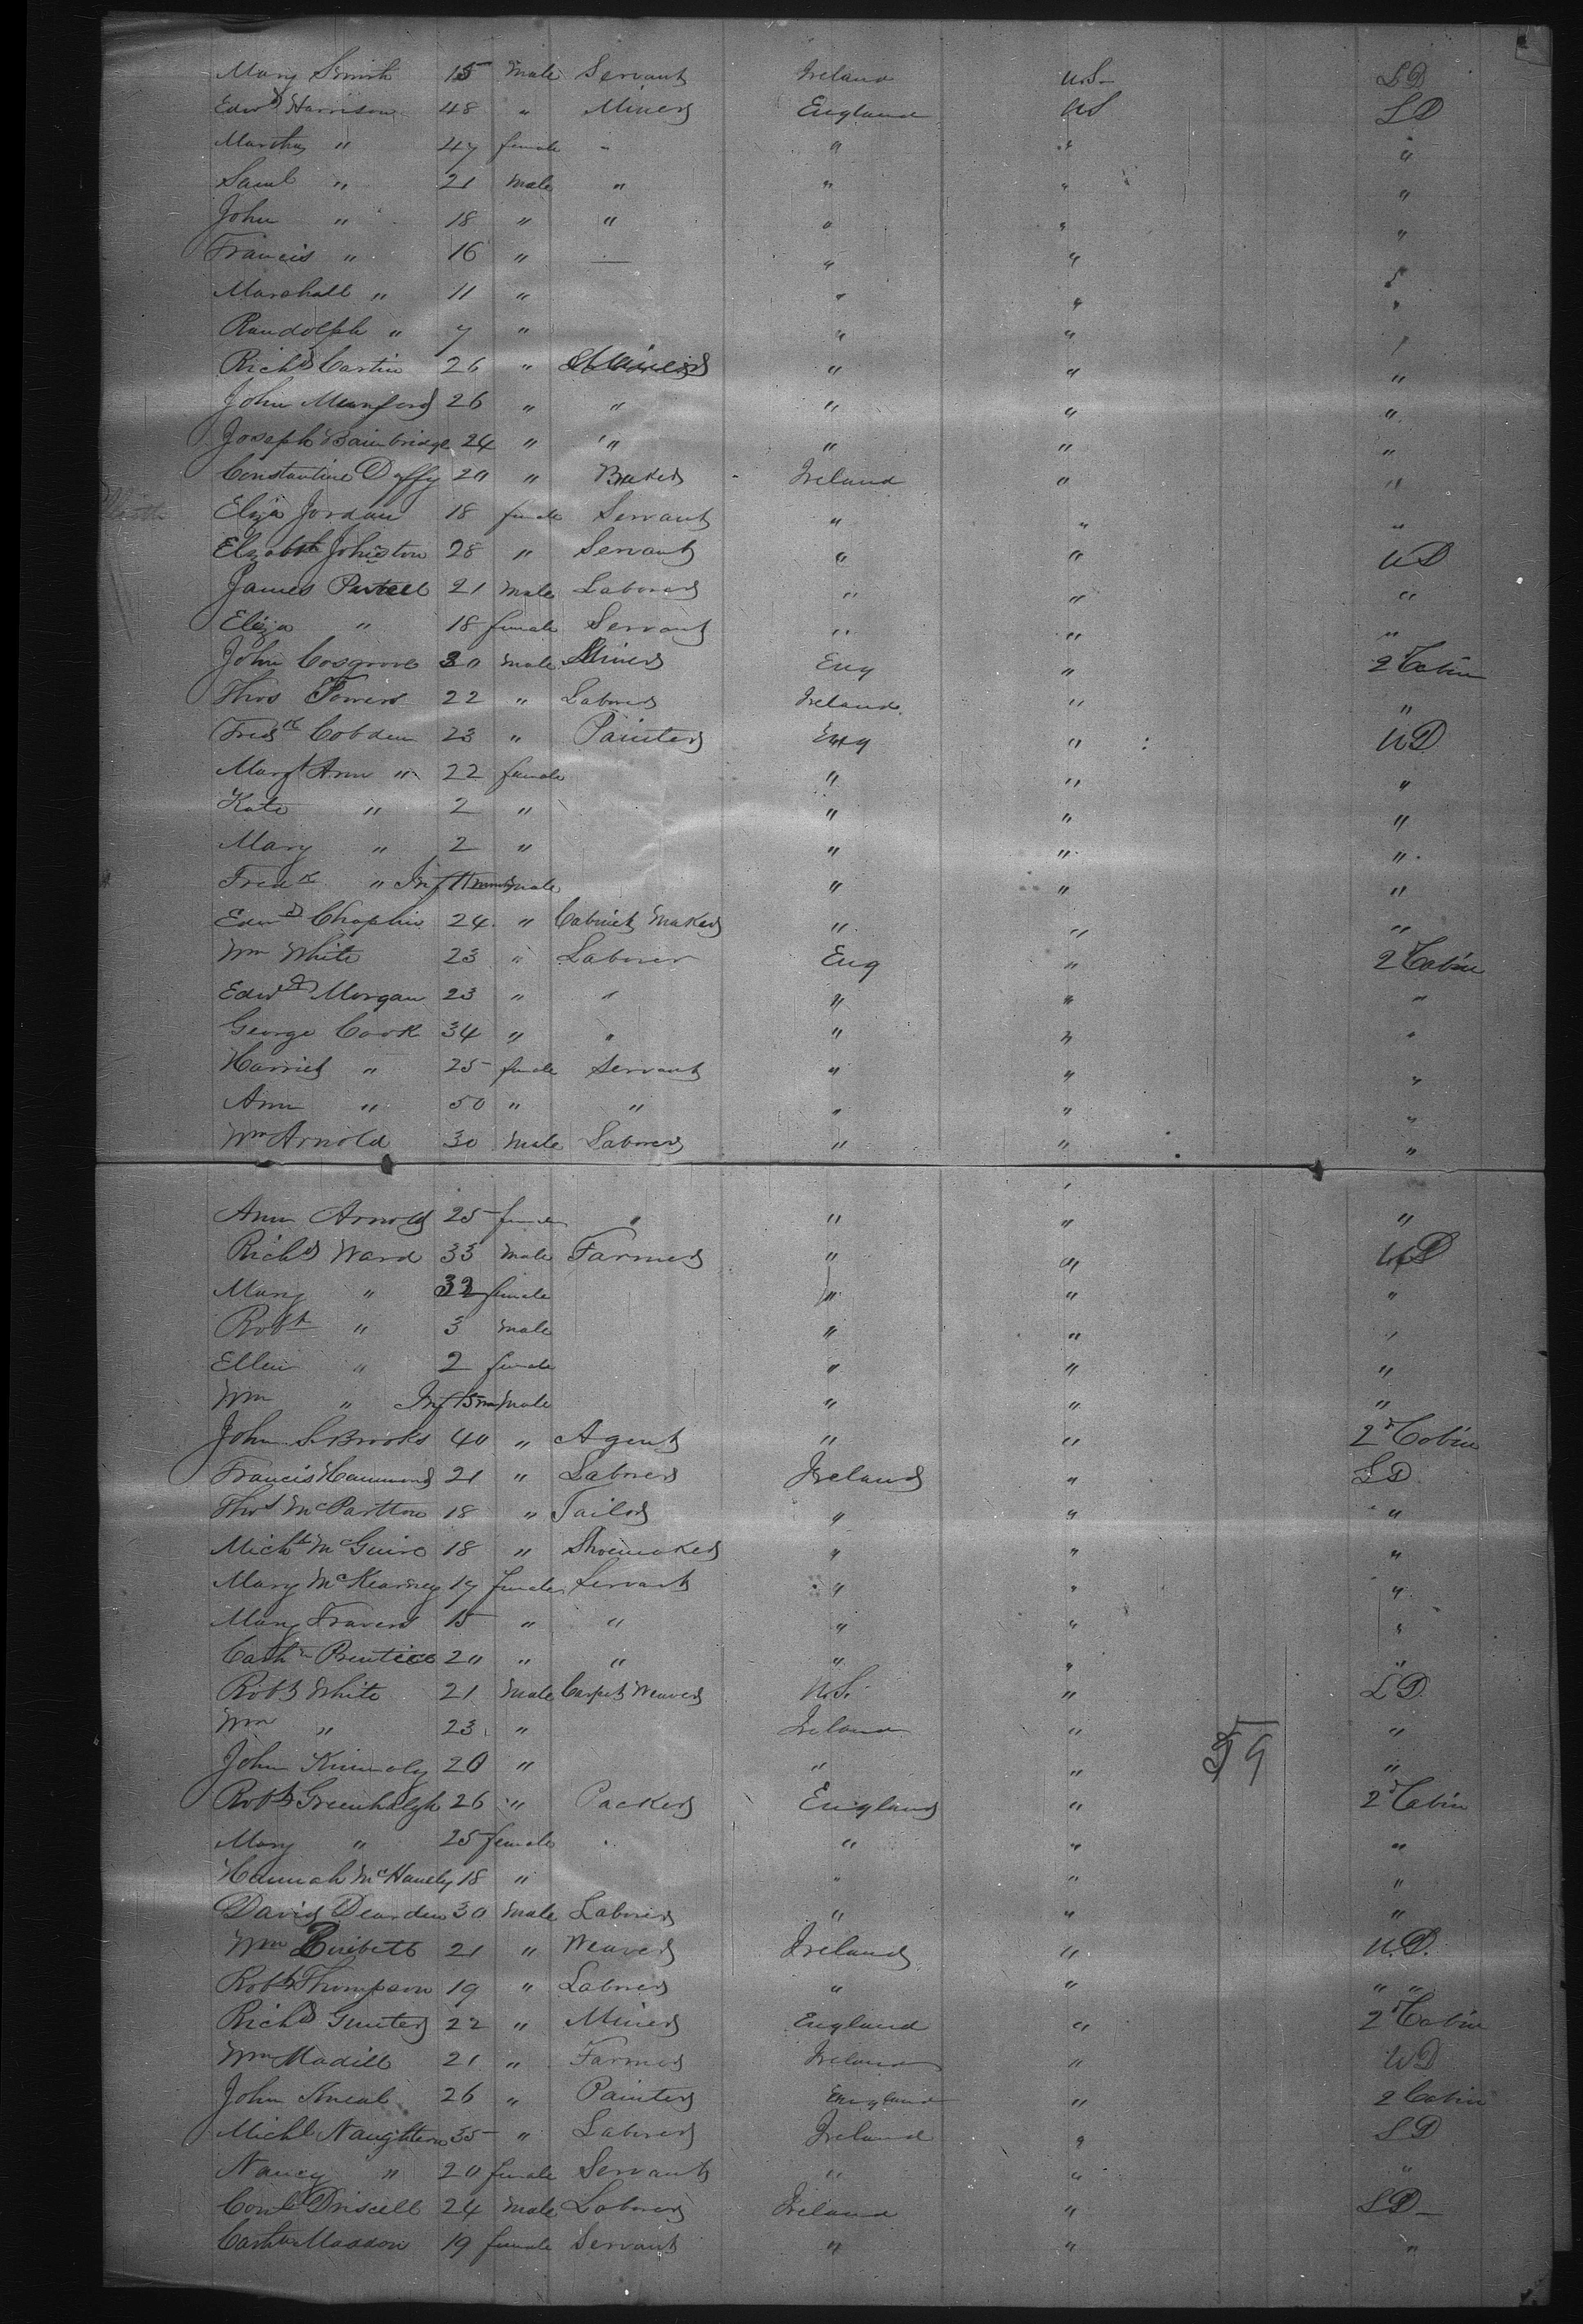 Mary Smith 15 male Servant Ireland U.S. LD
Edwd Harrison 48 " Miner England US LD
Martha " 47 female " " " "
Saml " 21 male " " " "
John " 18 " " " " "
Francis " 16 " — " " "
Marshall " 11 " " " "
Randolph " 7 " " " "
Richd 26 " Miner " " "
John Munford 26 " " " " "
Joseph Bainbridge 24 " " " " "
Constantine Duffy 20 " Baker Ireland " "
Eliza Jordan 18 female Servant " " "
Elizabth Johnston 28 " Servant " " UD
James 21 male Laborer " " "
Eliza " 18 female Servant " " "
John Cosgrove 30 male Miner Eng " 2 Cabin
Thos 22 " Laborer Ireland " "
Fredk Cobden 23 " Painter Eng " UD
Margt Ann " 22 female " " "
Kate " 2 " " " "
Mary " 2 " " " "
Fredk " Inf 11 mns male " " "
Edwd Chaplin 24 " Cabinet Maker " " "
Wm White 23 " Laborer Eng " 2 Cabin
Edwd Morgan 23 " " " " "
George Cook 34 " " " " "
Harriet " 25 female Servant " " "
Ann " 50 " " " " "
Wm Arnold 30 male Laborer " " "
Ann Arnold 25 female " " " "
Richd Ward 33 male Farmer " " UD
Mary " 32 female " " "
Robt " 3 male " " "
Ellen " 2 female " " "
Wm " Inf male " " "
John S. Brooks 40 " Agent " " 2d Cabin
Francis Hammond 21 " Laborer Ireland " LD
Thos McPartton 18 " Tailor " " "
Michl McGuire 18 " Shoemaker " " "
Mary McKearney 17 female Servant " " "
Mary Travers 15 " " " " "
Cathn Prentice 20 " " " " "
Robt White 21 male Carpet Weaver U.S. " LD
Wm " 23 " Ireland " "
John 20 " " " "
Robt Greenhalgh 26 " Packer England " 2d Cabin
Mary " 25 female " " "
Hannah 18 " " " "
David Dearden 30 male Laborer " " "
Wm 21 " Weaver Ireland " U.D.
Robt Thompson 19 " Laborer " " " "
Richd Gunter 22 " Miner England " 2d Cabin
Wm Madill 21 " Farmer Ireland " UD
John Kneal 26 " Painter England " 2 Cabin
Michl Naughten 35 " Laborer Ireland " LD
Nancy " 20 female Servant " " "
Cornl Driscell 24 male Laborer Ireland " LD
Cathn Maddon 19 female Servant " " "